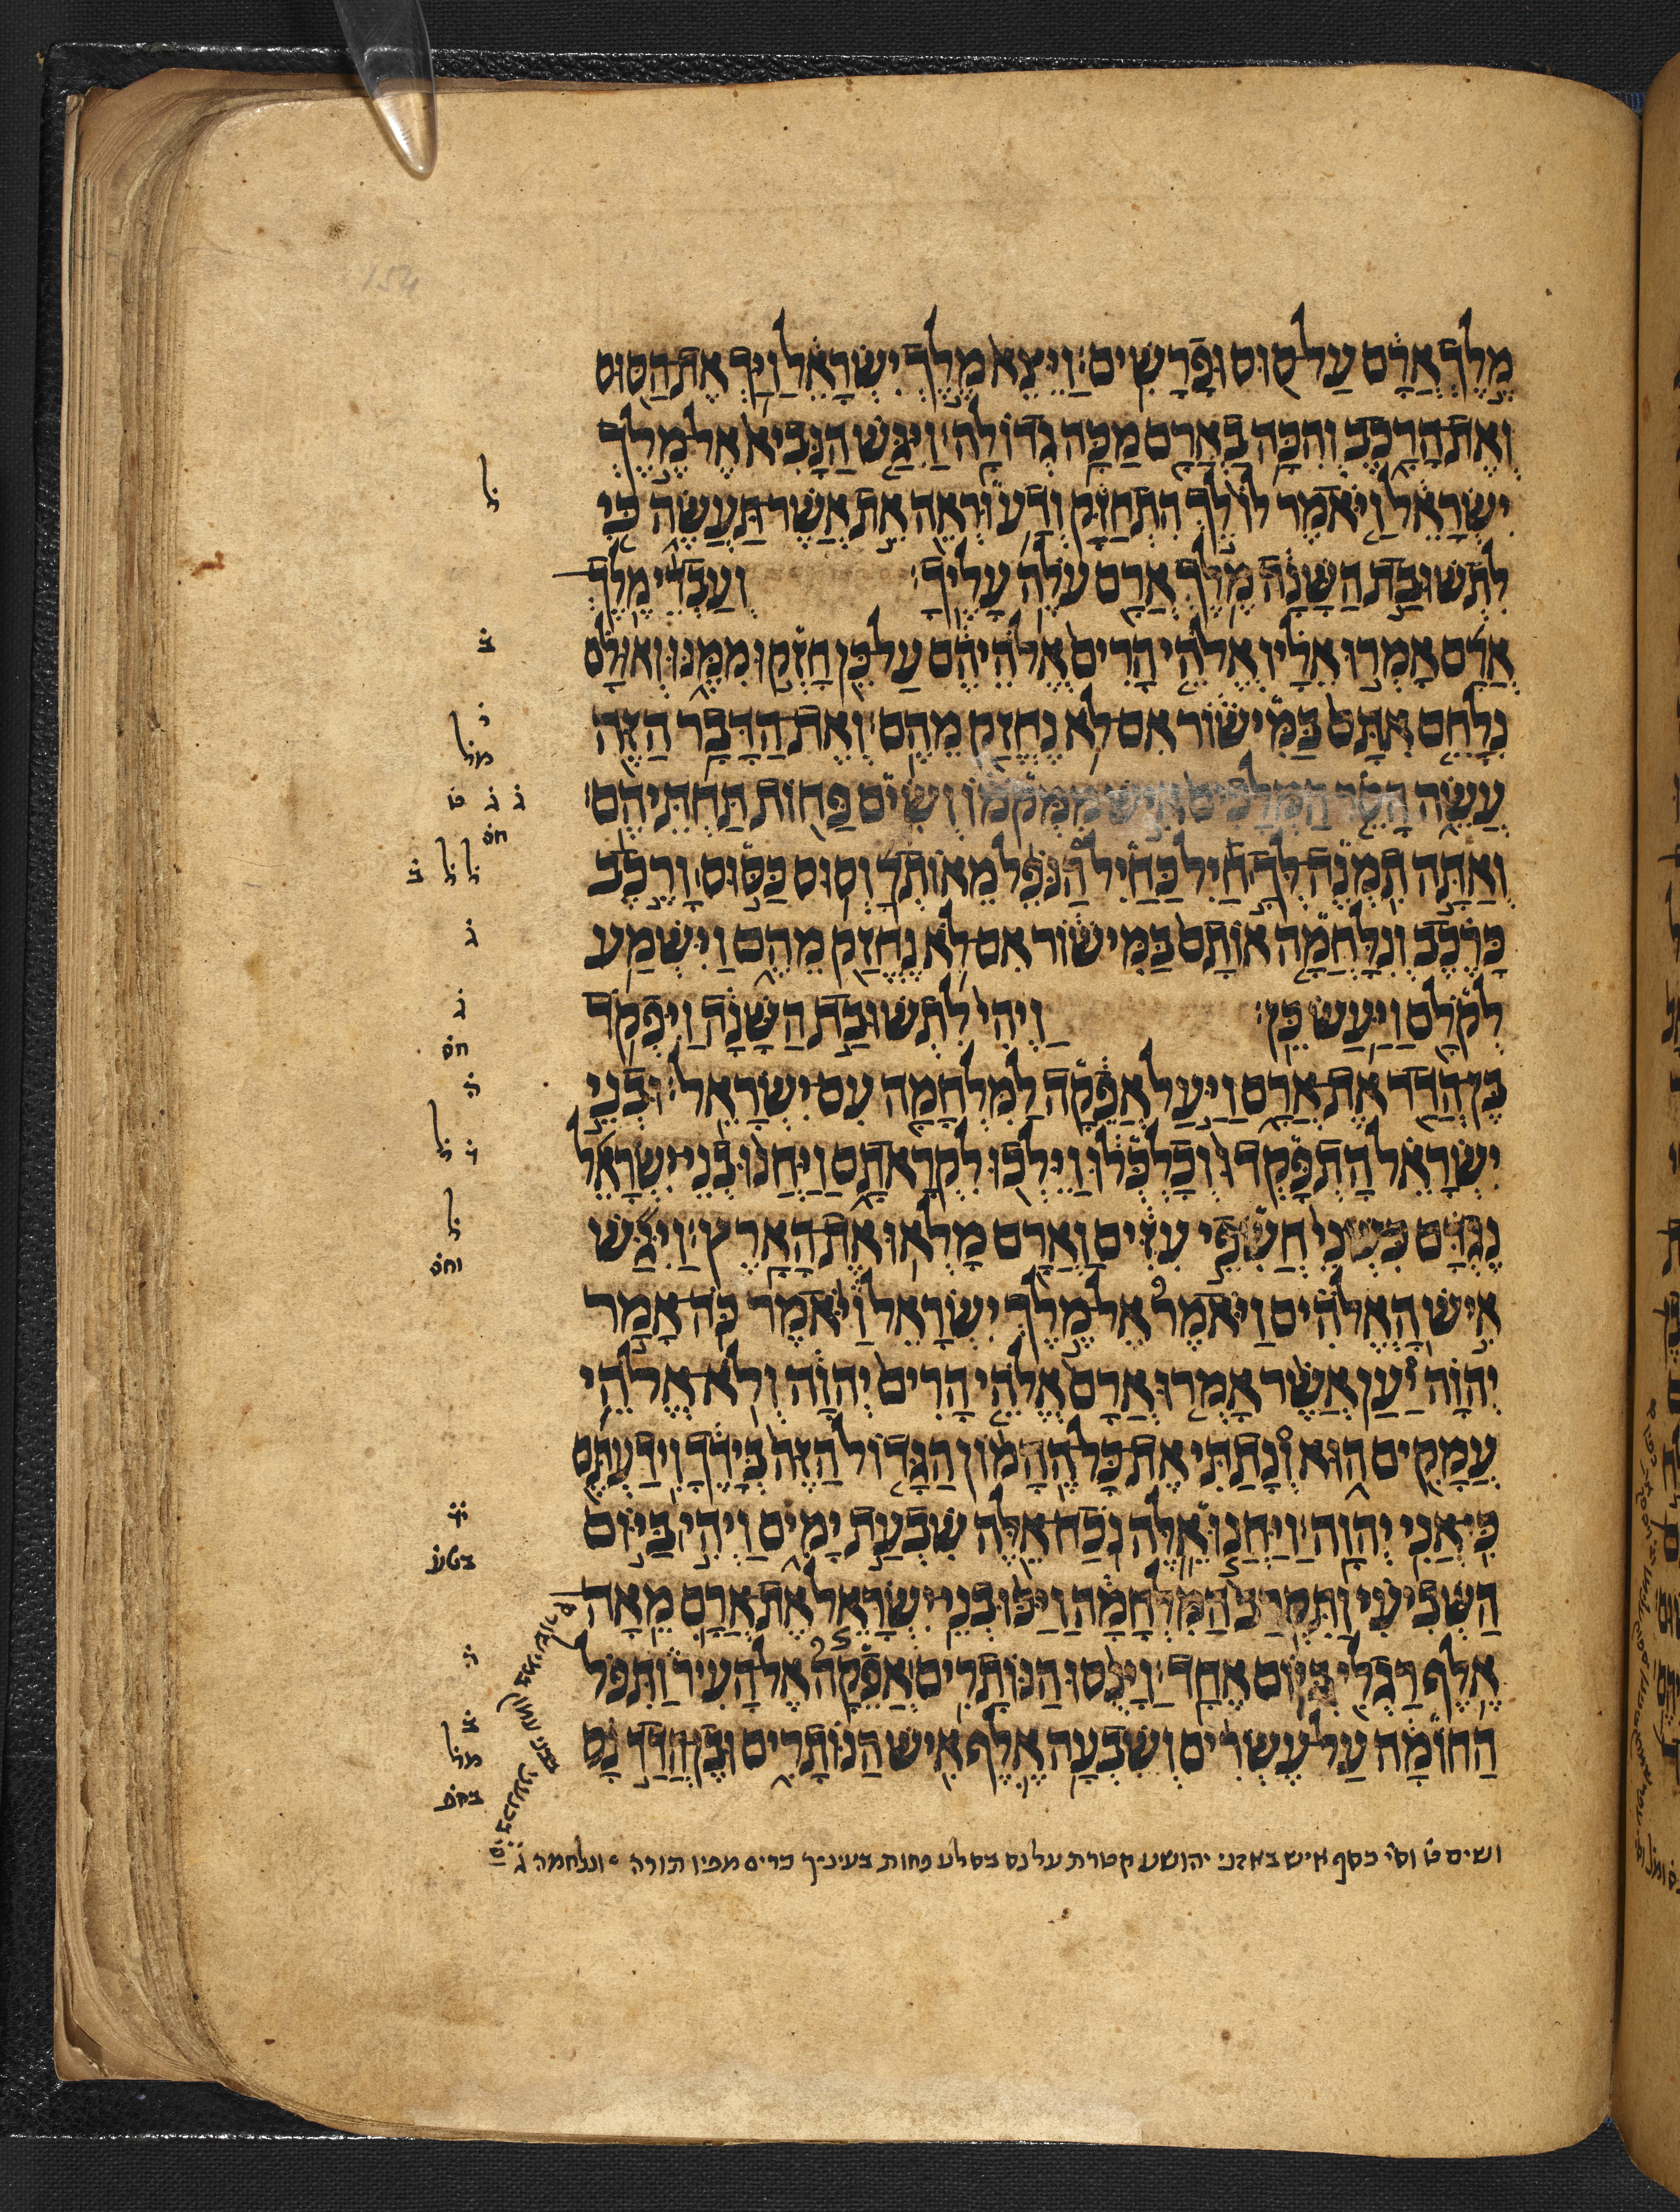 מֶלֶךְ אֲרָם עַל סוּס וּפָרָשִׁים׃ וַיֵּצֵא מֶלֶךְ יִשְׂרָאֵל וַיַּךְ אֶת הַסּוּס
וְאֶת הָרָכֶב וְהִכָּה בַאֲרָם מַכָּה גְדוֹלָה׃ וַיִּגַּשׁ הַנָּבִיא אֶל מֶלֶךְ
יִשְׂרָאֵל וַיֹּאמֶר לוֹ לֵךְ הִתְחַזַּק וְדַע וּרְאֵה אֵת אֲשֶׁר תַּעֲשֶׂה כִּי
לִתְשׁוּבַת הַשָּׁנָה מֶלֶךְ אֲרָם עֹלֶה עָלֶיךָ׃ וְעַבְדֵי מֶלֶךְ
אֲרָם אָמְרוּ אֵלָיו אֱלֹהֵי הָרִים אֱלֹהֵיהֶם עַל כֵּן חָזְקוּ מִמֶּנּוּ וְאוּלָם
נִלָּחֵם אִתָּם בַּמִּישׁוֹר אִם לֹא נֶחֱזַק מֵהֶם׃ וְאֶת הַדָּבָר הַזֶּה
עֲשֵׂה הָסֵר הַמְּלָכִים אִישׁ מִמְּקֹמוֹ וְשִׂים פַּחוֹת תַּחְתֵּיהֶם׃
וְאַתָּה תִמְנֶה לְךָ חַיִל כַּחַיִל הַנֹּפֵל מֵאוֹתָךְ וְסוּס כַּסּוּס וְרֶכֶב
כָּרֶכֶב וְנִלָּחֲמָה אוֹתָם בַּמִּישׁוֹר אִם לֹא נֶחֱזַק מֵהֶם וַיִּשְׁמַע
לְקֹלָם וַיַּעַשׂ כֵּן׃ וַיְהִי לִתְשׁוּבַת הַשָּׁנָה וַיִּפְקֹד
בֶּן הֲדַד אֶת אֲרָם וַיַּעַל אֲפֵקָה לַמִּלְחָמָה עִם יִשְׂרָאֵל׃ וּבְנֵי
יִשְׂרָאֵל הָתְפָּקְדוּ וְכָלְכְּלוּ וַיֵּלְכוּ לִקְרָאתָם וַיַּחֲנוּ בְנֵי יִשְׂרָאֵל
נֶגְדָּם כִּשְׁנֵי חֲשִׂפֵי עִזִּים וַאֲרָם מָלְאוּ אֶת הָאָרֶץ׃ וַיִּגַּשׁ
אִישׁ הָאֱלֹהִים וַיֹּאמֶר אֶל מֶלֶךְ יִשְׂרָאֵל וַיֹּאמֶר כֹּה אָמַר
יְהוָה יַעַן אֲשֶׁר אָמְרוּ אֲרָם אֱלֹהֵי הָרִים יְהוָה וְלֹא אֱלֹהֵי
עֲמָקִים הוּא וְנָתַתִּי אֶת כָּל הֶהָמוֹן הַגָּדוֹל הַזֶּה בְּיָדֶךָ וִידַעְתֶּם
כִּי אֲנִי יְהוָה׃ וַיַּחֲנוּ אֵלֶּה נֹכַח אֵלֶּה שִׁבְעַת יָמִים וַיְהִי בַּיּוֹם
הַשְּׁבִיעִי וַתִּקְרַב הַמִּלְחָמָה וַיַּכּוּ בְנֵי יִשְׂרָאֵל אֶת אֲרָם מֵאָה
אֶלֶף רַגְלִי בְּיוֹם אֶחָד׃ וַיָּנֻסוּ הַנּוֹתָרִים אֲפֵקָה אֶל הָעִיר וַתִּפֹּל
הַחוֹמָה עַל עֶשְׂרִים וְשִׁבְעָה אֶלֶף אִישׁ הַנּוֹתָרִים וּבֶן הֲדַד נָס
ושים ט וס' כסף איש באזני יהושע קטרת על נס בסלע פחות בעיניך מפיו תורה ונלחמה ג